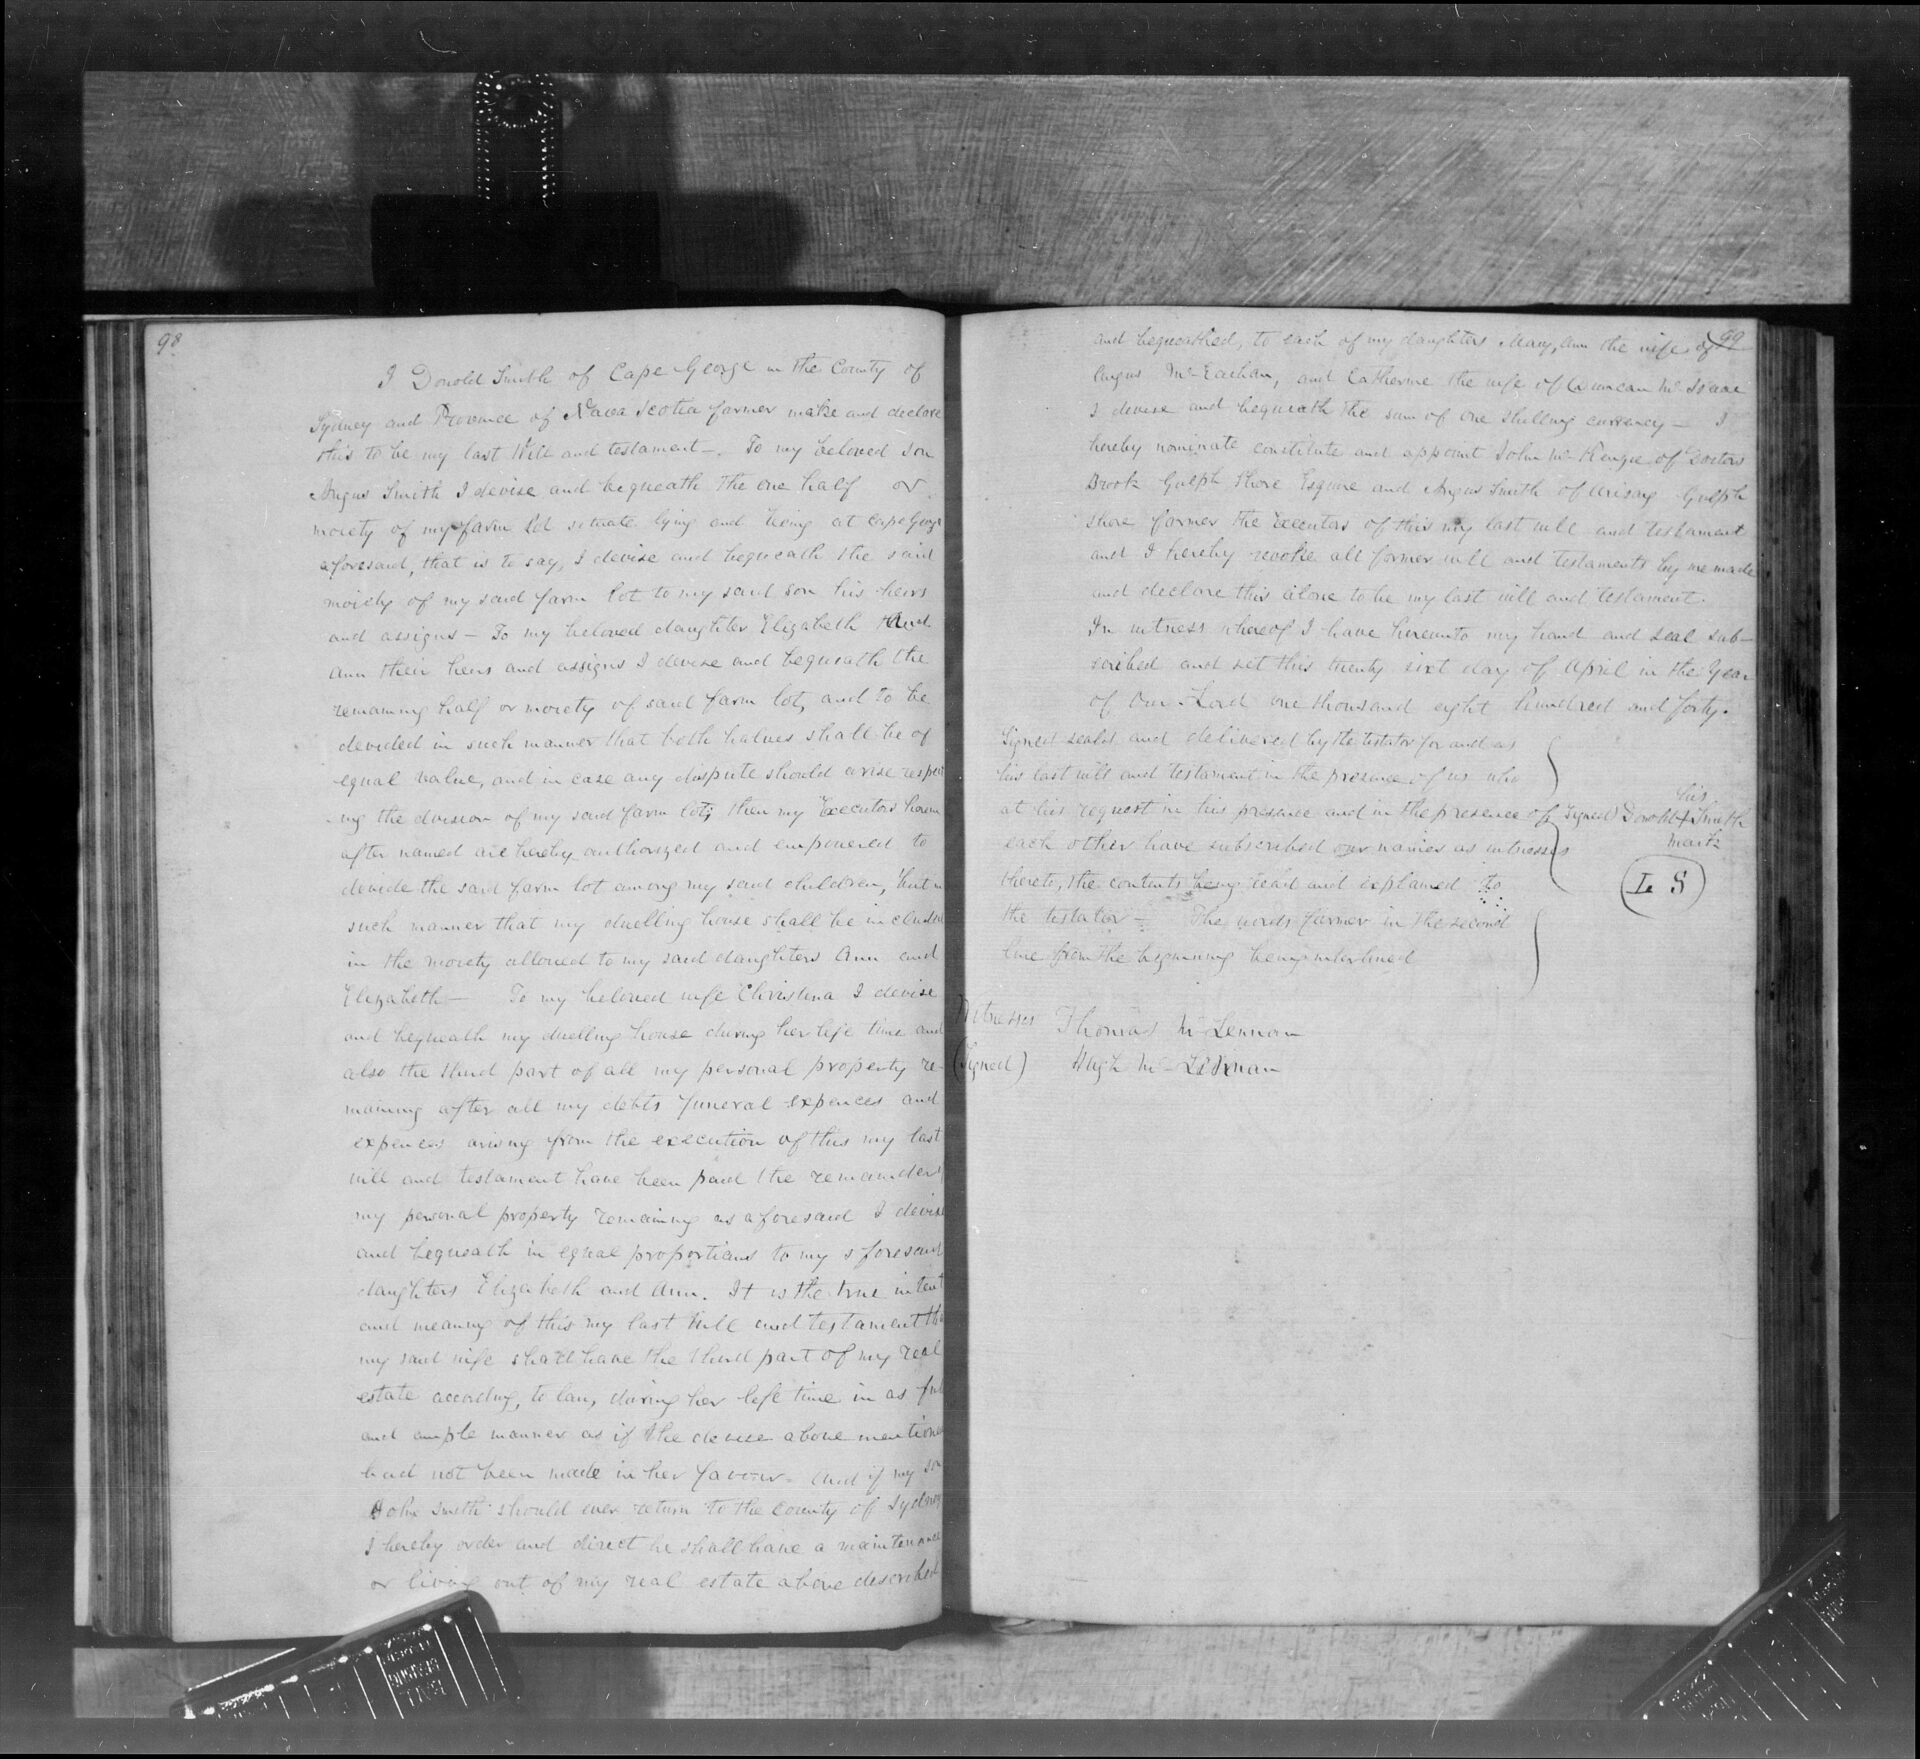 98
I Donold Smith of Cape George in the County of
Sydney and Province of Nava Scotia farmer make and declare
this to be my last Will and testament -. To my beloved son
Angus Smith I devise and bequeath the one half or
moiety of my farm lot situate lying and being at Cape George
aforesaid, that is to say, I devise and bequeath the said
moiety of my said farm lot to my said son his heirs
and assigns - To my beloved daughter Elizabeth And
Ann their heirs and assigns I devise and bequeath the
remaining half or moiety of said farm lot, and to be
devided in such manner that both halves shall be of
equal value, and in case any dispute should arise respect
-ing the division of my said farm lot; then my Executors herein
after named are hereby authorized and empowered to
devide the said farm lot among my said children, but in
such manner that my dwelling house shall be included
in the moiety allowed to my said daughters Ann and
Elizabeth - To my beloved wife Christina I devise
and bequeath my dwelling house during her life time and
also the third part of all my personal property re-
maining after all my debts funeral expences and
expences arising from the execution of this my last
will and testament have been paid the remainder
my personal property remaining as aforesaid I devise
and bequeath in equal proportions to my aforesaid
daughters Elizabeth and Ann. It is the true intent
and meaning of this my last Will and testament tha
my said wife shall have the third part of my real
estate according, to law, during her life time in as ful
and ample manner as if the devise above mentione
had not been made in her favour - And if my son
John Smith should ever return to the County of Sydney
I hereby order and direct he shall have a maintenance
or living out of my real estate above described
99
and bequeathed, to each of my daughters Mary, Ann the wife of
Angus McEachan, and Catherine the wife of Duncan McIsaac
I devise and bequeath the sum of one shilling currency - I
hereby nominate constitute and appoint John McKenzie of Doctors
Brook Gulph Shore Esquire and Angus Smith of Arisaig Gulph
shore farmer the Executors of this my last will and testament
and I hereby revoke all former will and testaments by me made
and declare this alone to be my last will and testament.
In witness whereof I have hereunto my hand and seal sub-
scribed and set this twenty sixt day of April in the Year
of Our Lord one thousand eight hundred and forty.
Signed seald and delivered by the testator for and as
his last will and testament in the presence of us who
at his request in his presence and in the presence of
each other have subscribed our names as witnesses
thereto, the contents being read and explained to
the testator - The words farmer in the second
line from the beginning being interlined
his
(Signed) Donold + Smith
mark
L S
Witnesses Thomas McLennan
(Signed) Hugh McLennan